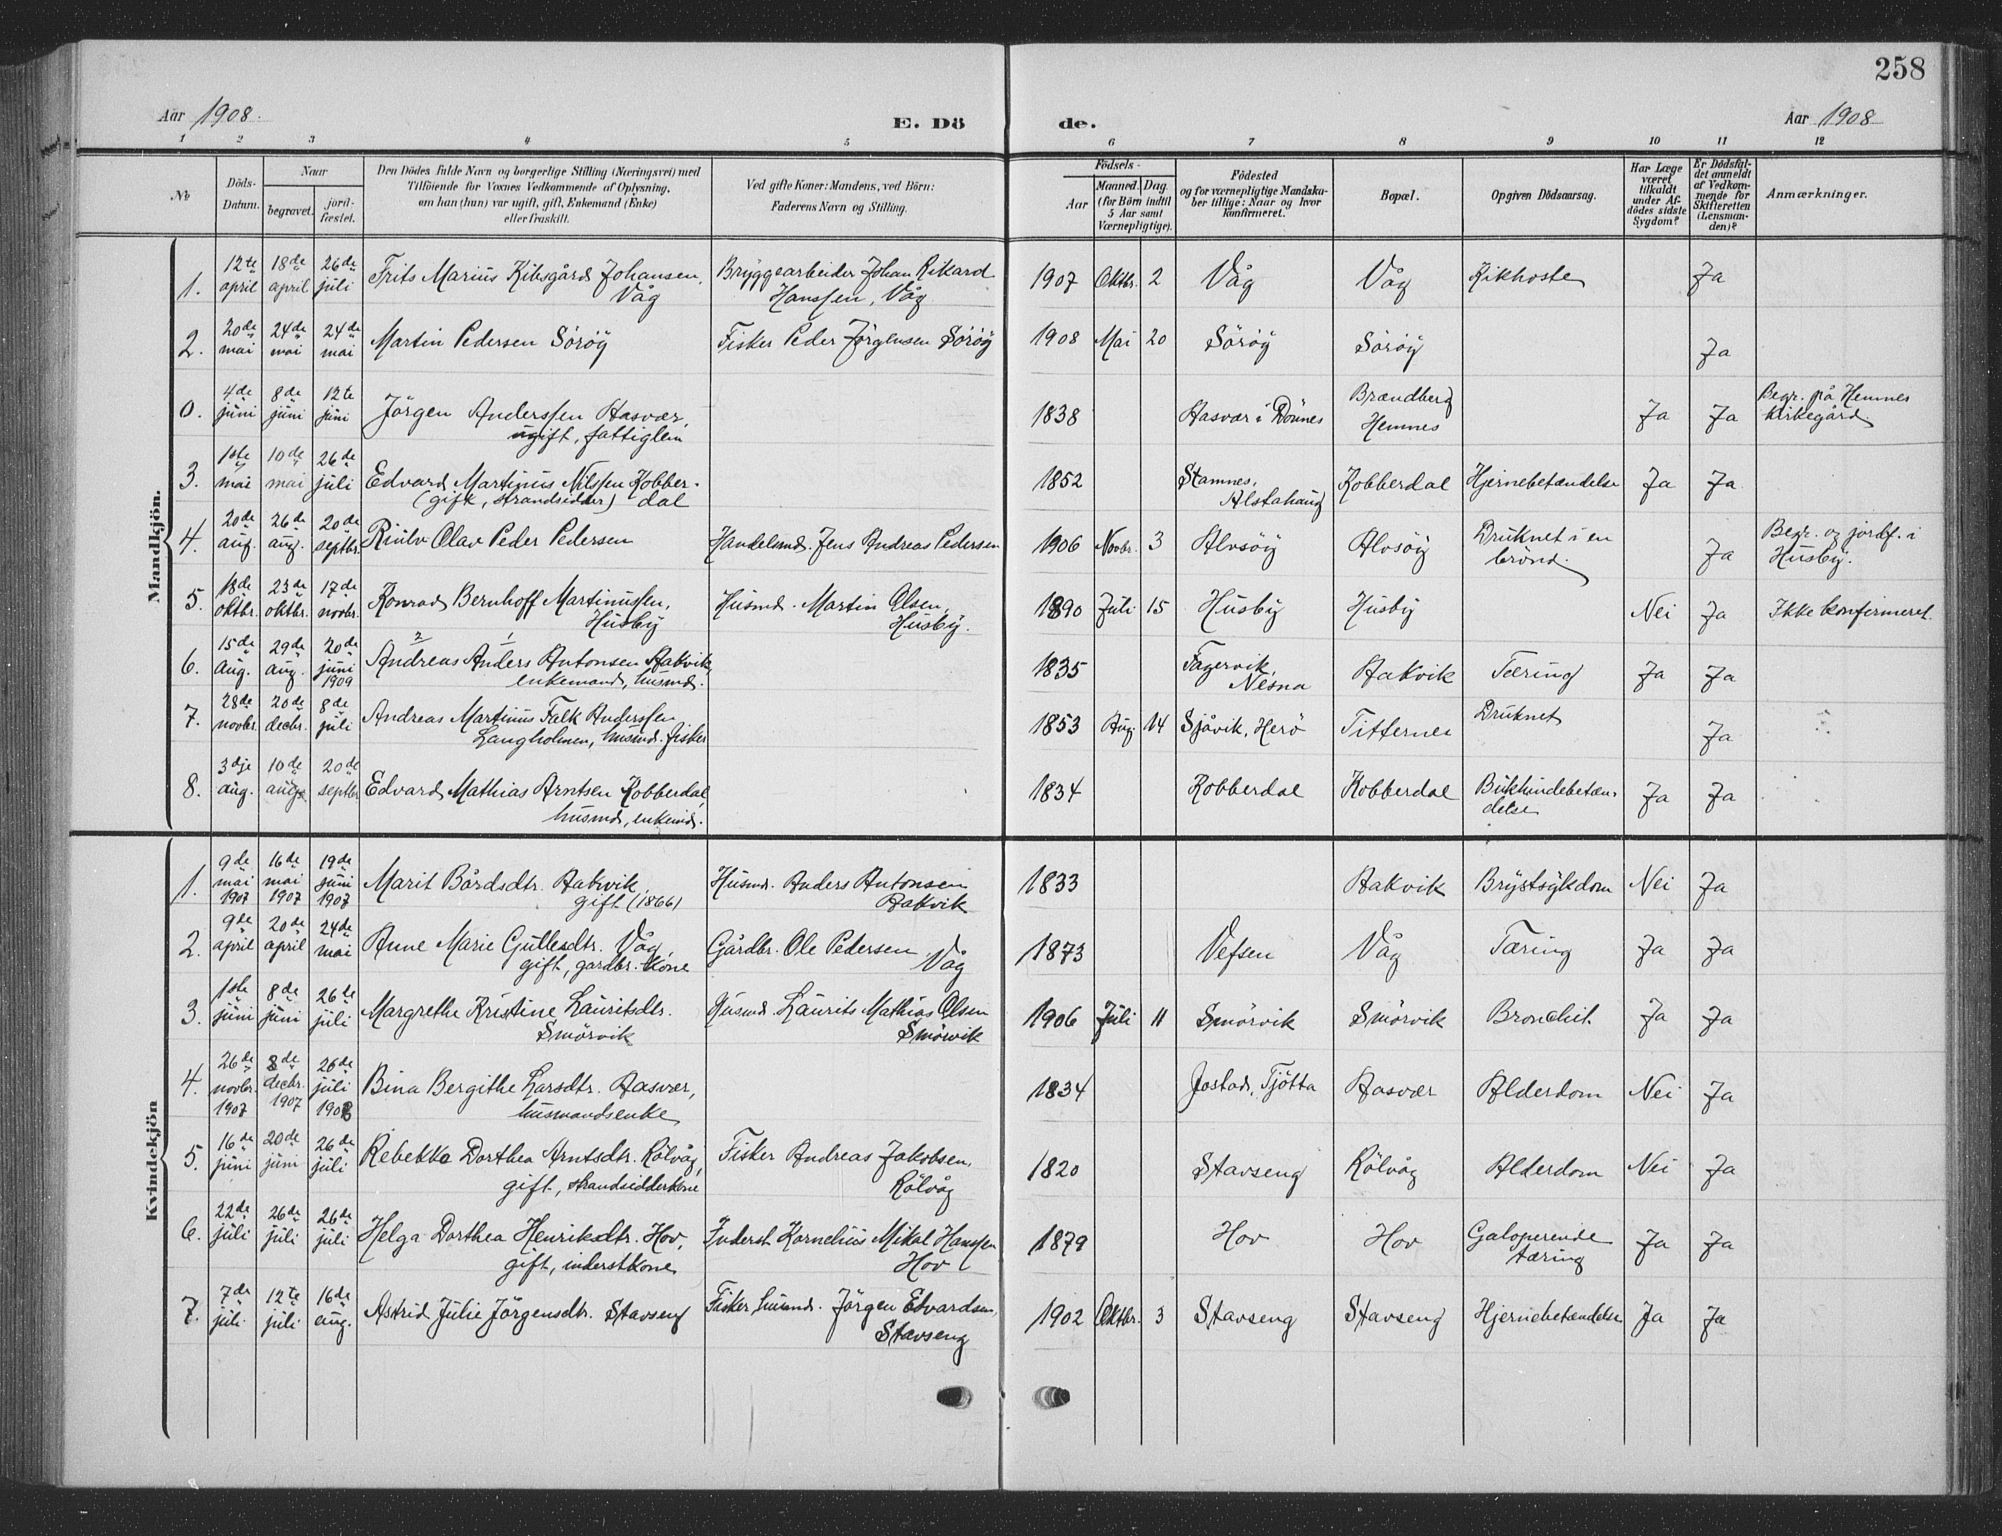 258
Aar 1908. E. Dö de. Aar 1908
1 2 3 4 5 6 7 8 9 10 11 12
No
Döds-Datum.
Naar
begravet.
jordfæstet.
Den Dödes fulde Navn og borgerlige Stilling (Næringsvei) med
Tilföiende for Voxnes Vedkommende af Oplysning,
om han (hun) var ugift, gift, Enkemand (Enke)
eller fraskilt.
Ved gifte Koner: Mandens, ved Börn:
Faderens Navn og Stilling.
Födsels-
Aar
Maaned. Dag.
(for Börn indtil
5 Aar samt
Værnepligtige).
Födested
og for værnepligtige Mandsku-
ber tillige: Naar og hvor
konfirmeret.
Bopæl.
Opgiven Dödsaarsag.
Har Læge
været
tilkaldt
under Af-
dödes sidste
Sygdom?
Er Dödsfal-
det anmeldt
af Vedkom-
mende for
Skifteretten
(Lensman-
den)?
Anmærkninger.
Mandkjön.
1. 12te april 18de april 26de juli Frits Marius Kibsgård Johansen, Våg Bryggearbeider Johan Rikard Hanssen, Våg 1907 Oktbr. 2 Våg Våg Kikhoste Ja
2. 20de mai 24de mai 24de mai Martin Pedersen Söröy Fisker Peder Jörgensen Söröy 1908 Mai 20 Söröy Söröy Ja
0. 4de juni 8de juni 12te juni Jörgen Anderssen Hasvær, ugift, fattiglem 1838 Aasvær i Dönnes Brændberg Hemnes Ja Ja Begr. på Hemnes kirkegård.
3. 1ste mai 10de mai 26de juli Edvard Martinus Nilssen Kobberdal (gift, strandsidder) 1852 Stamnes, Alstahaug Kobberdal Hjernebetændelse Ja Ja
4. 20de aug. 26de aug. 20de septbr. Olav Peder Pedersen Handelsmd. Jens Andreas Pedersen 1906 Novbr. 3 Alvsöy Alvsöy Druknet i en brönd. Ja Begr. og jordf. i Husby.
5. 18de oktbr. 23de oktbr. 17de novbr. Konrad Bernhoff Martinussen, Husby Husmd. Martin Olsen, Husby. 1890 Juli 15 Husby Husby Nei Ja Ikke konfirmeret.
6. 15de aug. 29de aug. 20de juni 1909 2 1 Andreas Anders Antonsen Aakvik, enkemand, husmd. 1835 Fagervik, Nesna Aakvik Tæring Ja Ja
7. 28de novbr. 20de decbr. 8de juli Andreas Martinus Falk Anderssen Langholmen, husmd. fisker 1853 Aug. 14 Sjåvik, Herö Titternes Druknet Ja
8. 3dje aug. 10de aug. 20de septbr Edvard Mathias Arntsen Kobberdal, husmd, enkemd. 1834 Kobberdal Kobberdal Bukhindebetændelse Ja Ja
Kvindekjön
1. 9de mai 1907 16de mai 1907 19de juni 1907 Marit Bårdsdtr. Aakvik, gift (1866) Husmd. Anders Antonsen Aakvik 1833 Aakvik Brystsykdom Nei Ja
2. 9de april 20de april 24de mai Anne Marie Gullesdtr. Våg, gift, gardbr. kone Gårdbr. Ole Pedersen Våg 1873 Vefsen Våg Tæring Ja Ja
3. 1ste juni 8de juni 26te juli Margrethe Kristine Lauritsdtr. Smörvik Husmd. Laurits Mathias Olsen Smörvik 1906 Juli 11 Smörvik Smörvik Bronchit. Ja Ja
4. 26de novbr. 1907 8de decbr. 1907 26de juli 1908 Bina Bergithe Larsdtr. Aasvær, husmandsenke 1834 Jostad, Tjötta Aasvær Alderdom Nei Ja
5. 16de juni 20de juni 26de juli Rebekka Dorthea Arntsdtr. Kölvåg, gift, strandsidderkone Fisker Andreas Jakobsen, Kölvåg 1820 Stavseng Kölvåg Alderdom Nei Ja
6. 22de juli 26de juli 26de juli Helga Dorthea Henriksdtr. Hov, gift, inderstkone Inderst Kornelius Mikal Hanssen Hov 1879 Hov Hov Galoperende tæring Ja Ja
7. 7de juli 12te juli 16de aug. Astrid Julie Jörgensdtr. Stavseng Fisker, husmd. Jörgen Edvardsen, Stavseng 1902 Oktbr. 3 Stavseng Stavseng Hjernebetændelse Ja Ja